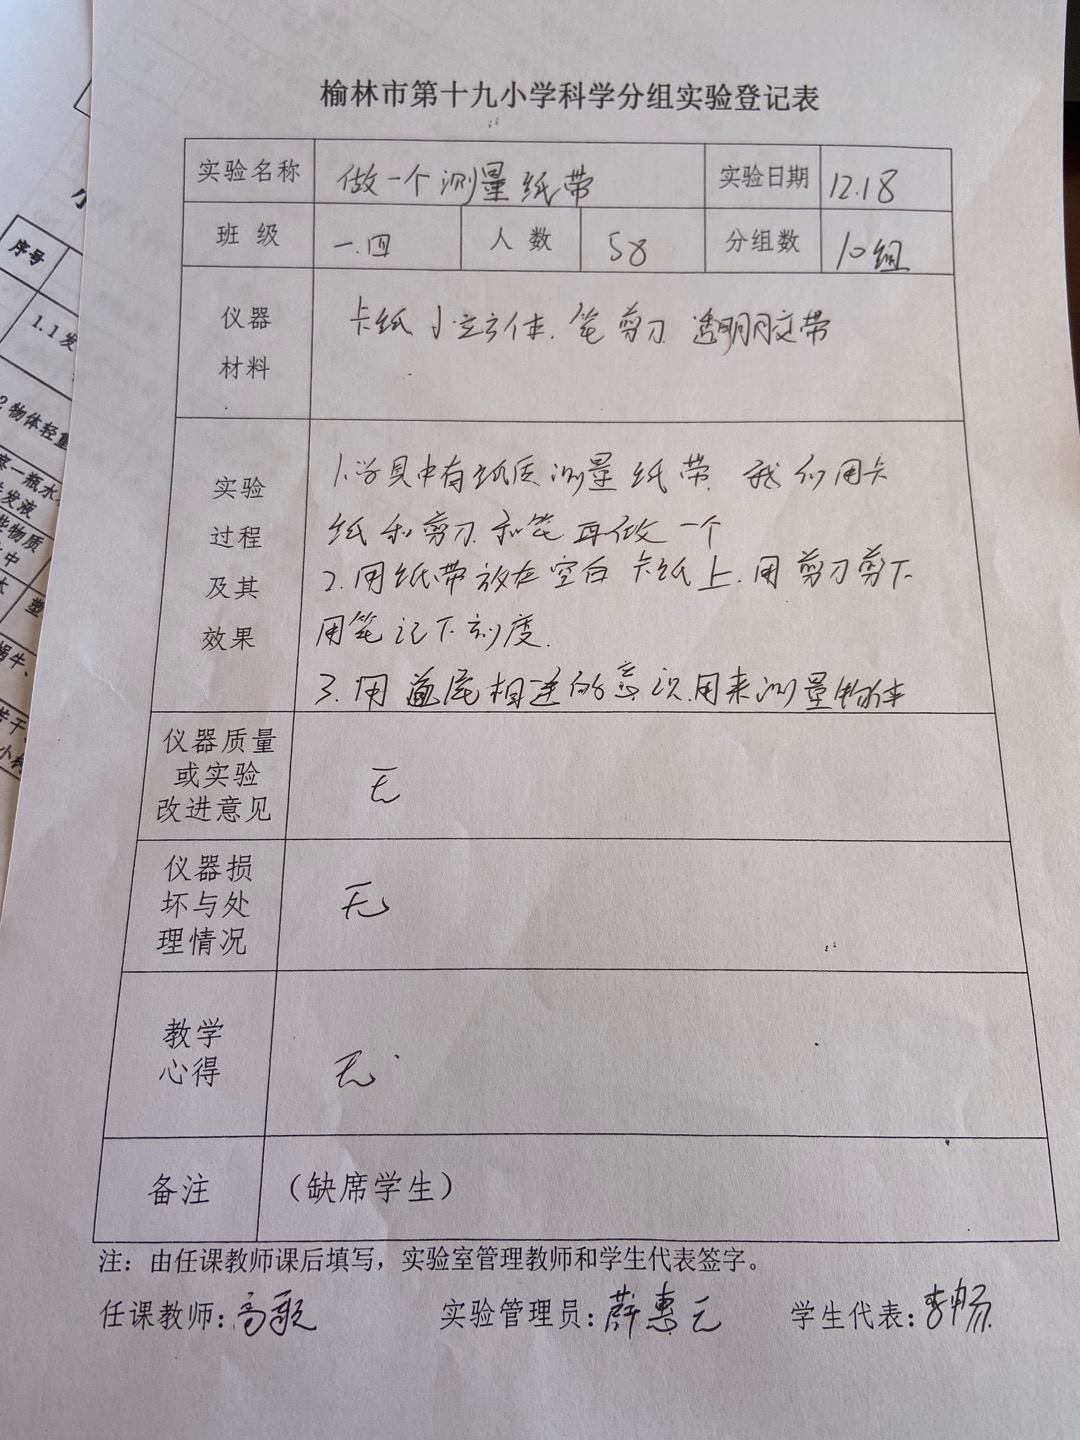 榆林市第十九小学科学分组实验登记表
实验名称 做一个测量纸带 实验日期 12.18
班级 一.四 人数 58 分组数 10组
仪器
材料
卡纸 小立方体. 笔 剪刀. 透明胶带
实验
过程
及其
效果
1.学具中有纸质测量纸带. 我们用卡
纸和剪刀和笔再做一个
2.用纸带放在空白卡纸上.用剪刀剪下
用笔记下刻度.
3.用首尾相连的意识.用来测量物体
仪器质量
或实验
改进意见
无
仪器损
坏与处
理情况
无
教学
心得
无
备注 （缺席学生）
注：由任课教师课后填写，实验室管理教师和学生代表签字。
任课教师：高歌 实验管理员：薛惠元 学生代表：李畅
序号
1.1发
2物体轻重
一瓶水
发液
些物质
中
塑
蜗牛、
若干、